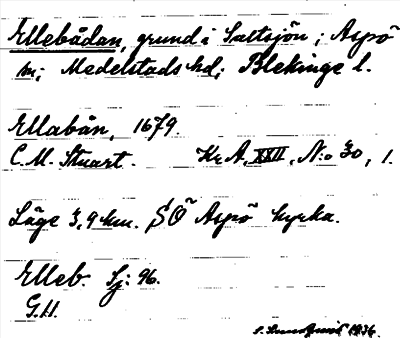 Ellebådan, grund i Saltsjön; Aspö
sn; Medelstads hd; Blekinge l.
Ellabån, 1679.
C. M. Stuart. Kr A, XXII, N:o 30, 1.
Läge 3,9 km. SÖ Aspö kyrka.
Elleb. Sj: 96.
G.H.
1936.